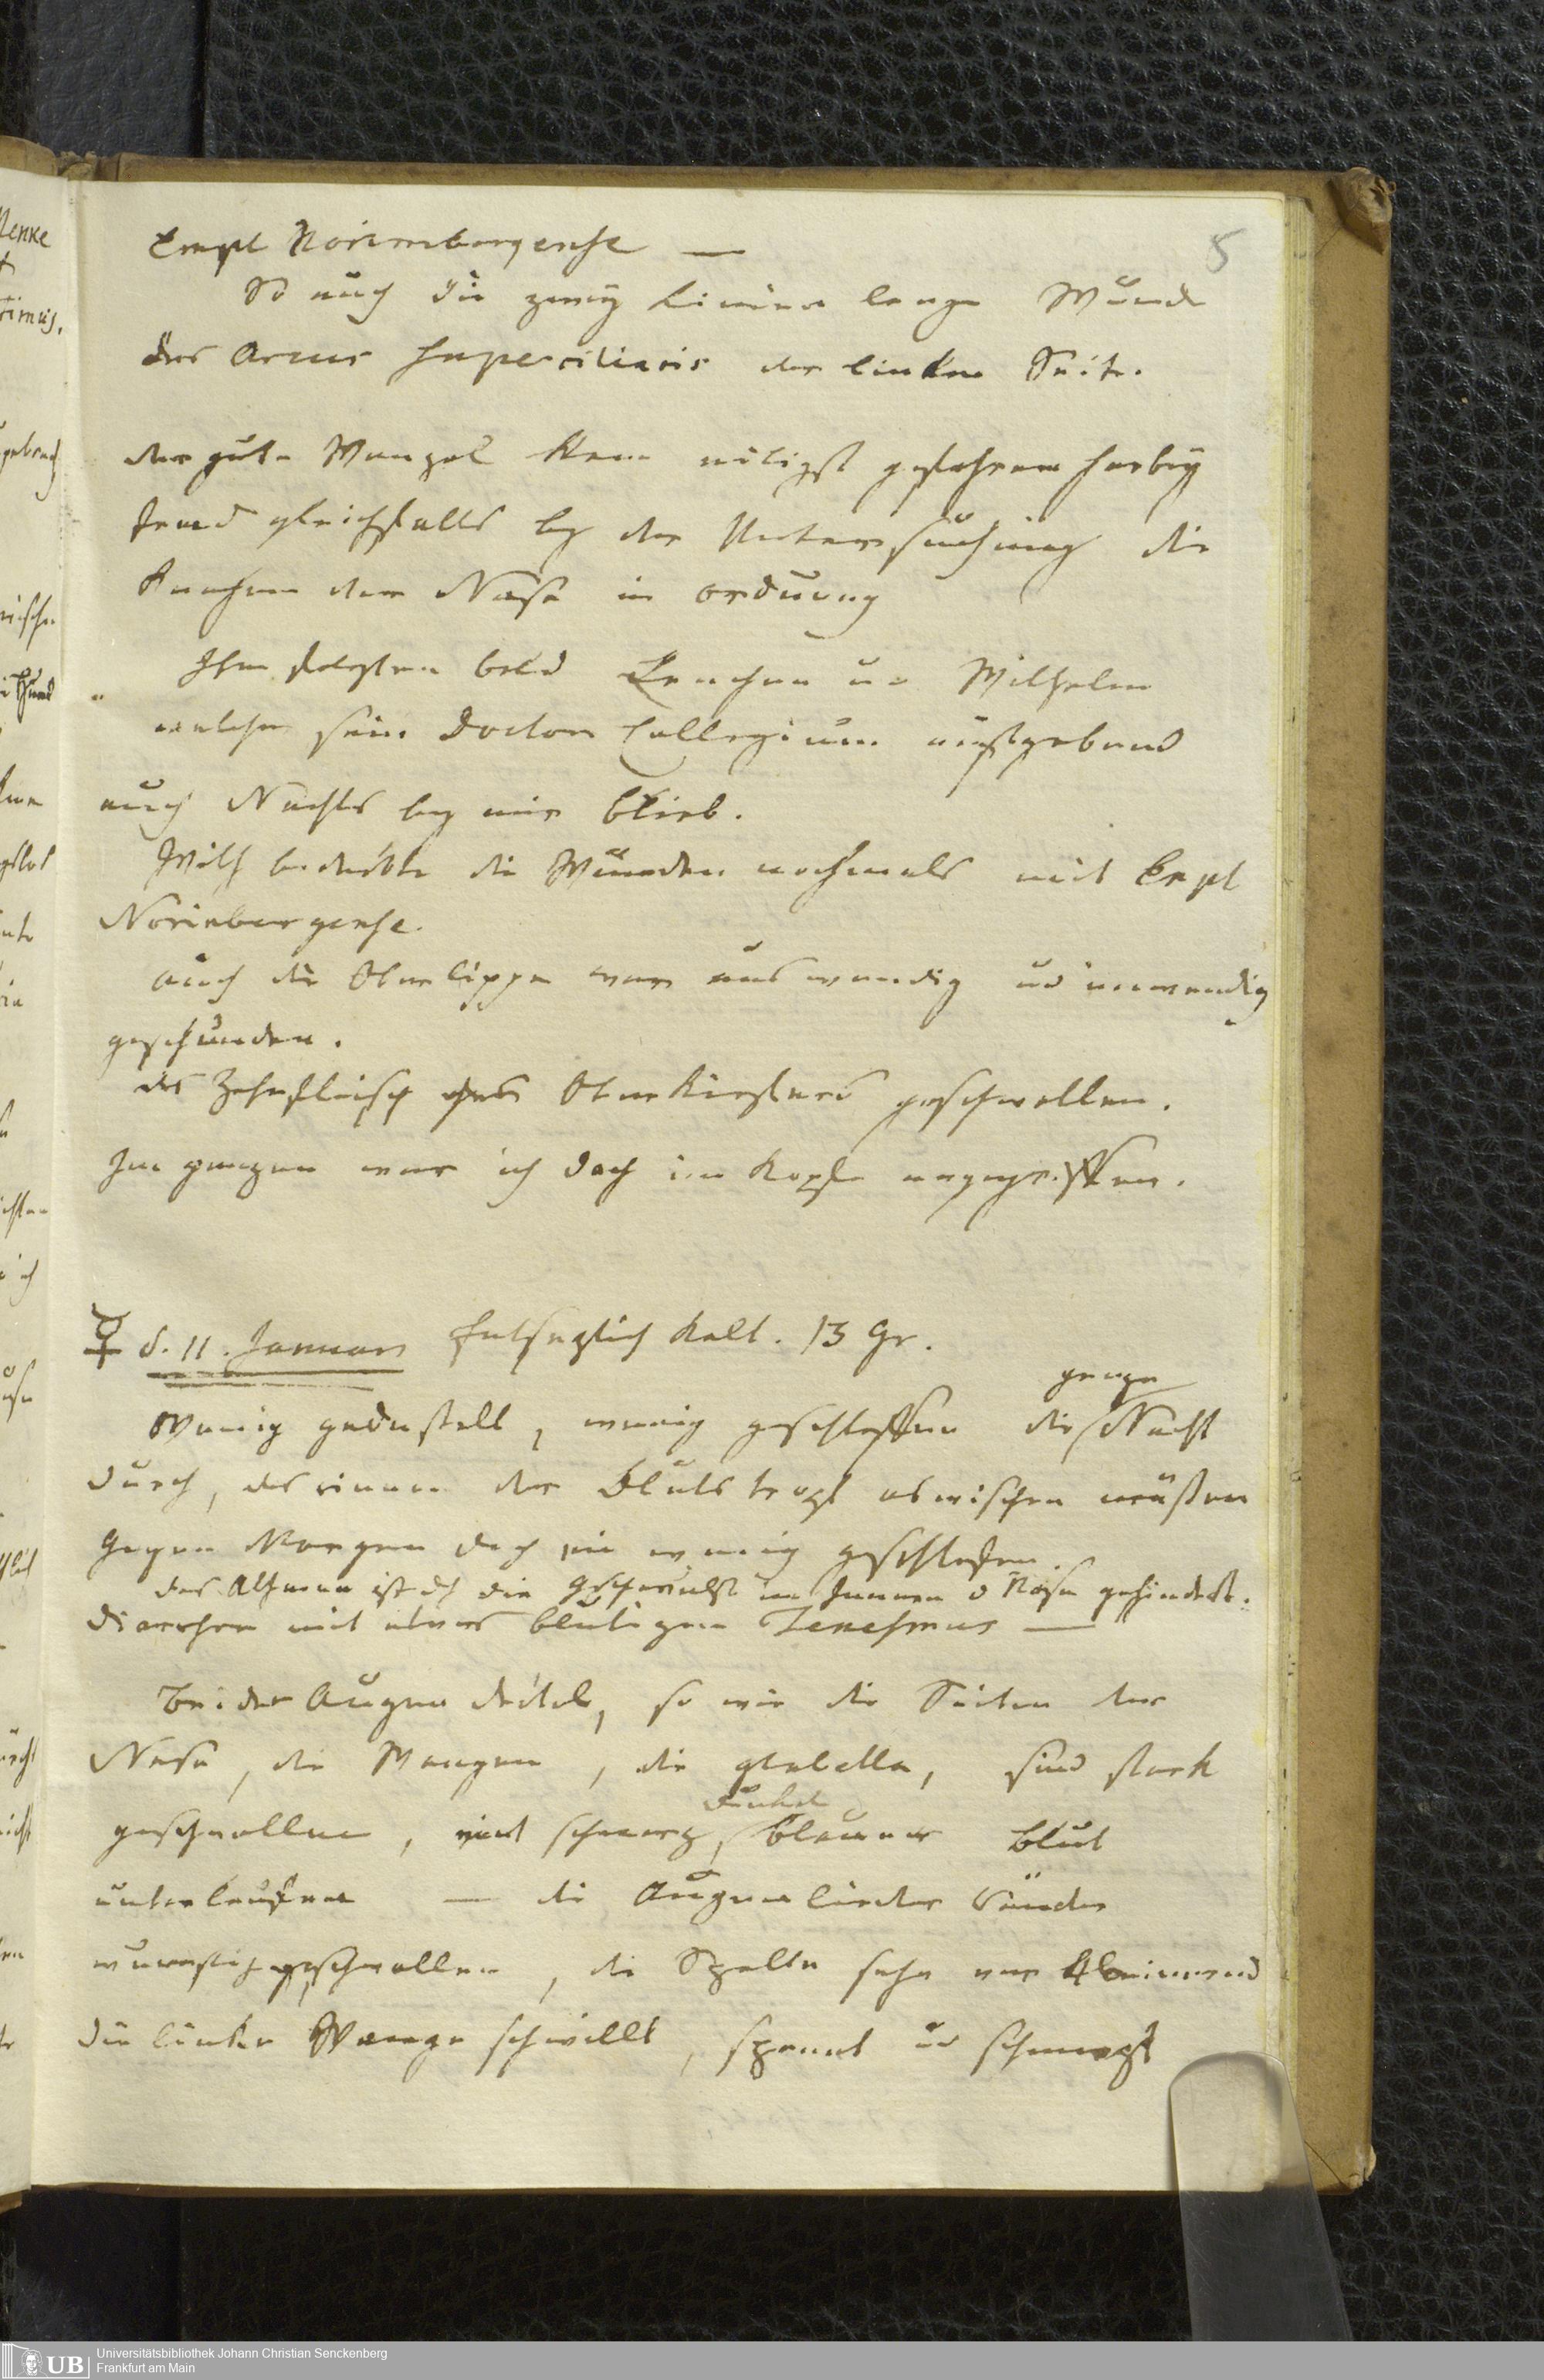 5
Empl Norimbergense —
So auch die zwey Linien lange Wunde
des Arcus superciliaris der linken Seite.
der gute Wenzel kam eiligst gefahren herbey
fand gleichfalls bey der Untersuchung die
Knochen der Nase in ordnung
Ihm folgten bald Lenchen u Wilhelm
welcher sein Doctor Collegium aussgebend
auch Nachts bey mir blieb.
Wilh bedeckte die Wunden nochmals mit Empl
Norimbergense.
auch die Oberlippe war auswendig ud inwendig
geschunden.
das Zahnfleisch des Oberkiefers geschwollen.
Im ganzen war ich doch im Kopfe angegriffen.
♀ d. 11. Januar Entsezlich kalt. 13 Gr.
ganze
Wenig gedustelt, wenig geschlaffen die Nacht
durch, das rinnen der Blutstropf abwischen müssen
Gegen Morgen doch ein wenig geschlafen.
das Athmen ist dch die Geschwulst im Innern d Nase gehindert.
Diarrhoe mit etwas blutigem Tenesmus —
Beider Augen deckel, so wie die Seiten der
Nase, die Wangen, die glabella, sind stark
dunkel
geschwollen, mit schwarz, blauem Blut
unterlaufen — die Augenlieder Ränder
wurstig geschwollen, die Spalte sehr verkleinernd
die linke Wange schwillt, spannt ud schmerzt
Universitätsbibliothek Johann Christian Senckenberg
Frankfurt am Main
UB